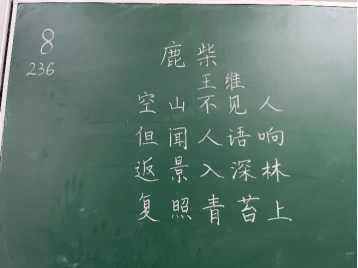 8
236
鹿柴
王维
空山不见人
但闻人语响
返景入深林
复照青苔上